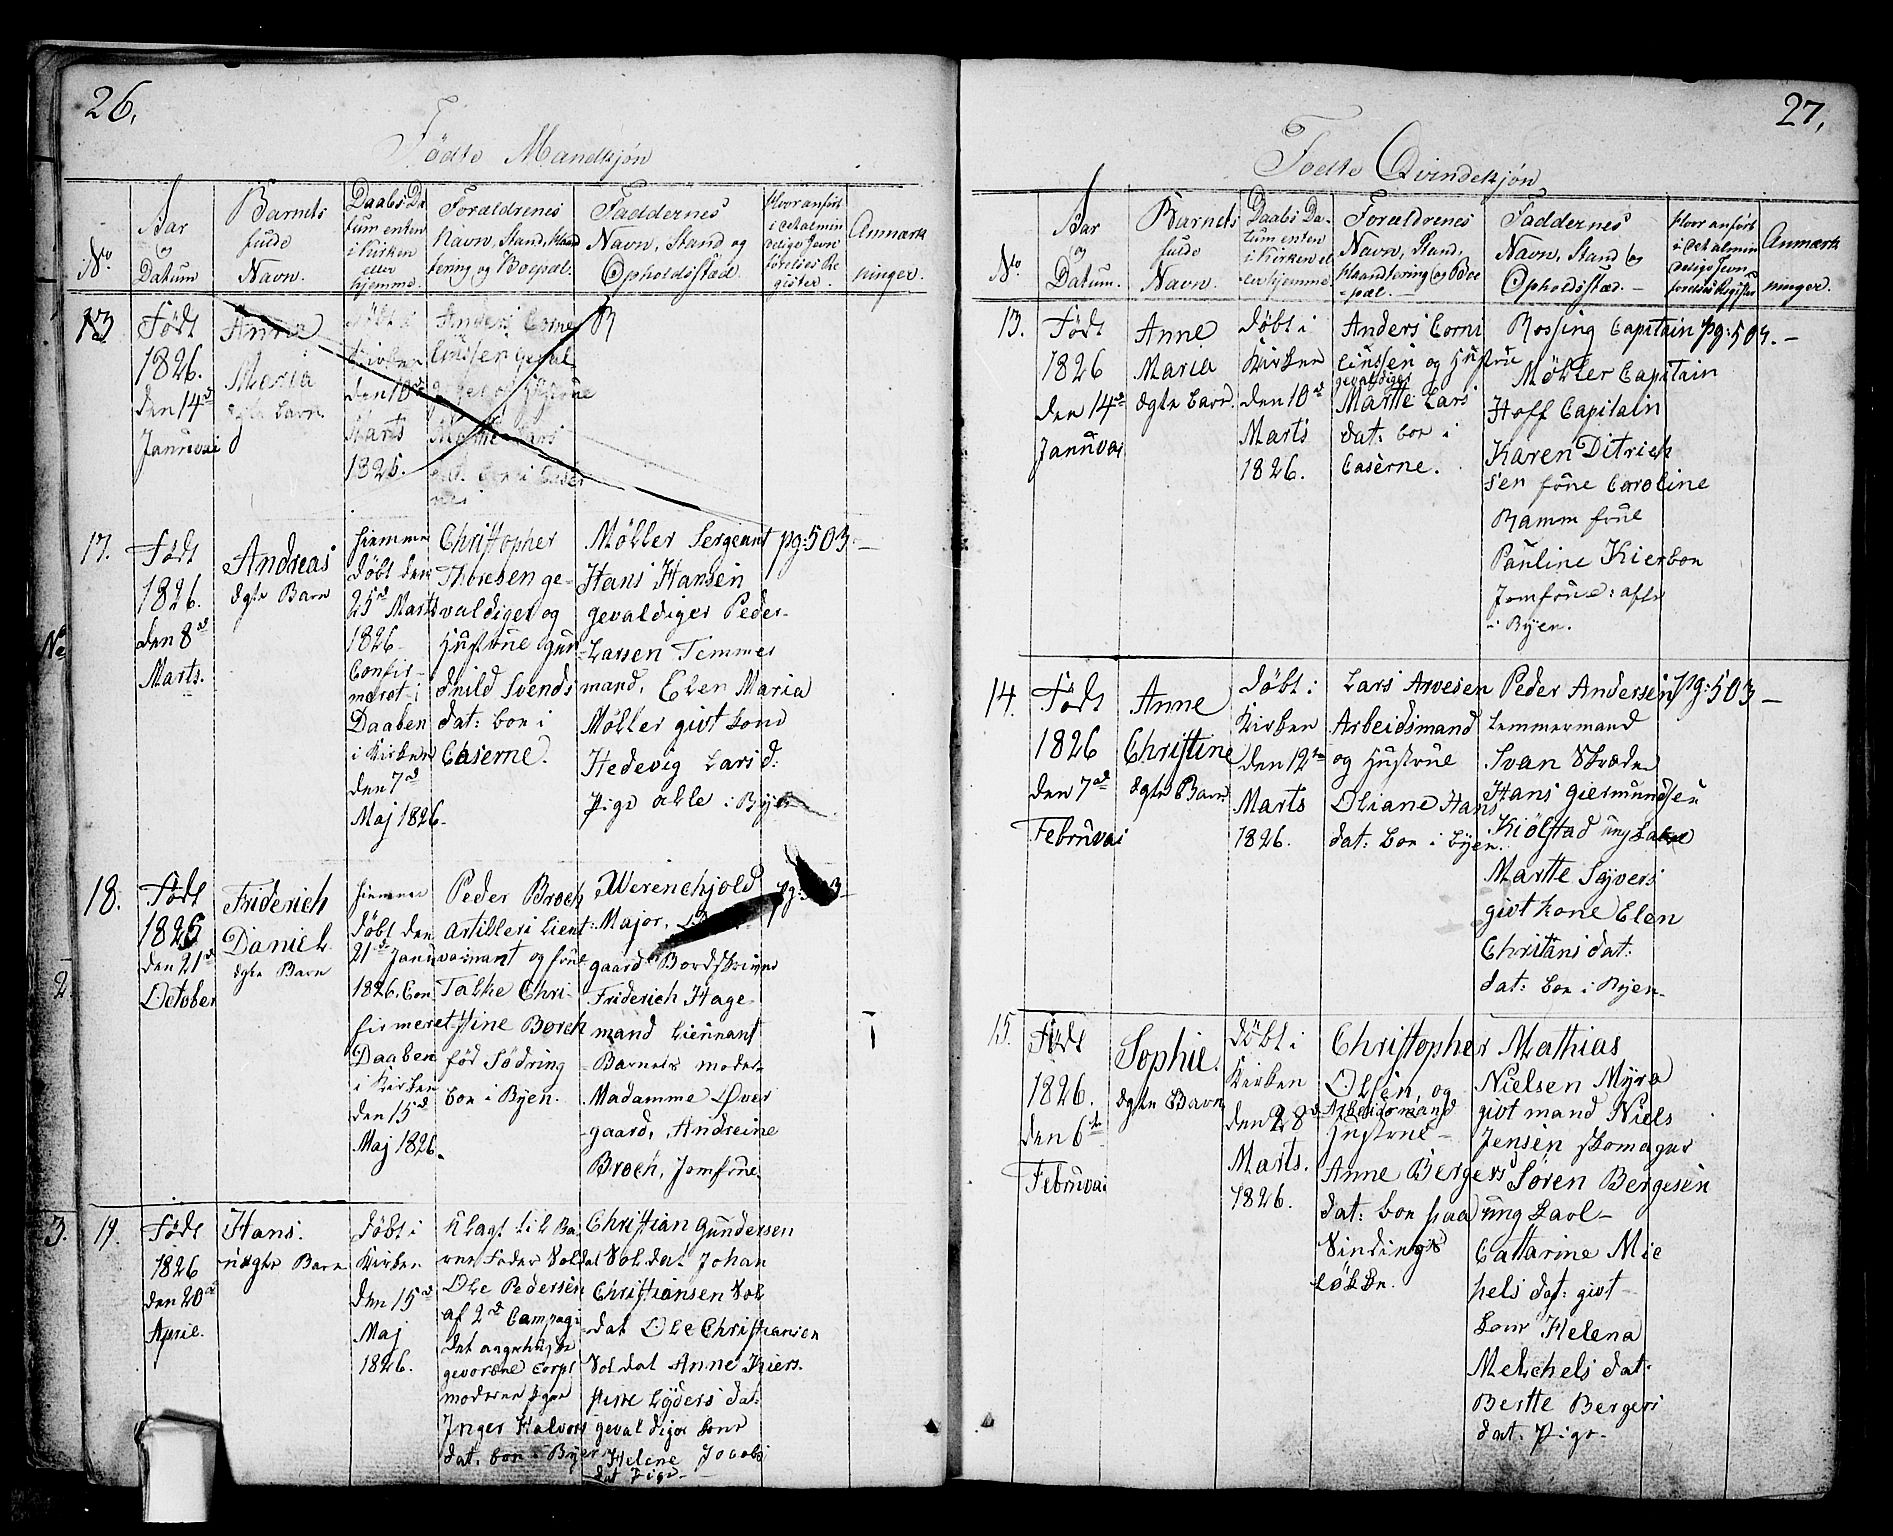 26.
Fødte Mandkjøn
No.
Aar og Datum
Barnets fulde Navn.
Daabs Datum enten i Kirken eller hjemme.
Forældrenes Navn, Stand, Haandtering og Boepæl.
Faddernes Navn, Stand og Opholdsstæd.
Hvor anført i det almindelige Jevnførelses Register.
Anmærkninger.
13
Født
1826.
den 14d
Januvai
Anna
Maria
ægte barn
døbt i
Kirken
den 10d
Marts
1826.
Anders Corne
liussen geval
diger og Hustrue
Marthe Lars
dat. boe i Caser
nes
17.
Født
1826.
den 8d
Marts.
Andreas
ægte Barn
hiemme
døbt den
25d Marts
1826
Confir-
meret i
Daaben
i Kirken
den 7d
Maj 1826.
Christopher
Thoresen ge-
valdiger og
Hustrue Gun
dnild Svends
dat: boe i
Caserne.
Møller Sergeant
Hans Hansen
gevaldiger Peder
Larsen Temmer
mand, Elen Maria
Møller givt kone
Hedevig Lars d:
Pige alle i Byen
pg: 503 —
18.
Født
1825
den 21d
October
Friderich
Daniel
ægte Barn
hiemme
døbt den
21d Janu
1826. Con
firmeret
Daaben
i Kirken
den 15d
Maj 1826.
Peder Broch
Artilleri Lieut
nant og frue
Talke Chri-
stine Borch
fød Sødring
boe i Byen.
Werenchjold
Major,
gaard Bordskriver
Friderich Hage
mand Lieunant
Barnets moder
Madamme Over
gaard, Andreine
Broch, Jomfrue
pg: 503 —
19.
Født
1826
den 20d
April.
Hans.
uægte Barn
døbt i
Kirken
den 15d
Maj
1826.
Klagt til Ba
rne Fader Soldat
Ole Pedersen
af 2d Campagi
det aggerhusske
gevorbne Corps
moderen pigen
Inger Halvors
dat. boe i Byen
Christian Gundersen
Soldat Johan
Christiansen Sol
dat Ole Christiansen
Soldat Anne Kiers-
stine Lyders dat:
gevaldiger kone
Helene Jacobs
dat Pige —
27.
Fødte Qvindekjøn
No.
Aar og Datum.
Barnets fulde Navn.
Daabs Datum enten i Kirken eller hjemme
Forældrenes Navn, Stand, Haandtering og Boepæl. —
Faddernes Navn, Stand og Opholdsstæd. —
Hvor anført i det almindelige Jevnførelses Register
Anmærkninger.
13.
Født
1826
den 14d
Januvai
Anne
Maria
ægte barn.
døbt i
Kirken
den 10d
Marts
1826.
Anders Corni
liussen og Hustrue
gevaldiger
Martte Lars
dat: boe i
Caserne.
Rosjing Capitain
Møller Capitain
Hoff Capitain
Karen Ditrich
sen frue Caroline
Ramm frue
Pauline Kierbon
Jomfrue: alle
i Byen.
pg: 503. —
14.
Født
1826
den 7d
Februvai
Anne
Christine
ægte Barn
døbt i
Kirken
den 12te
Marts
1826.
Lars Arvesen
Arbeidsmand
og Hustrue
Oliane Hans
dat: boe i Byen.
Peder Andersen
temmermand
Svan Skræder
Hans Giermundsen
Kiølstad ung Karl
Martte Syvers
givt kone Elen
Chritans dat:
dat: boe i Byen —
pg: 503 —
15.
Født
1826.
den 6te
Februvai
Sophie.
ægte Barn
døbt i
Kirken
den 28d
Marts.
1826.
Christopher
Olsen, og
Arbeidsmand
Hustrue —
Anne Bergers
dat: boe paa
Vindings
Løkke.
Mathias
Nielsen Myra
givt mand Niels
Jensen skomager
Søren Bergesen
ung karl —
Cattarine Mic
hels dat: givt
kone Helena
Melchels dat:
Bertte Bergers
dat: Pige —